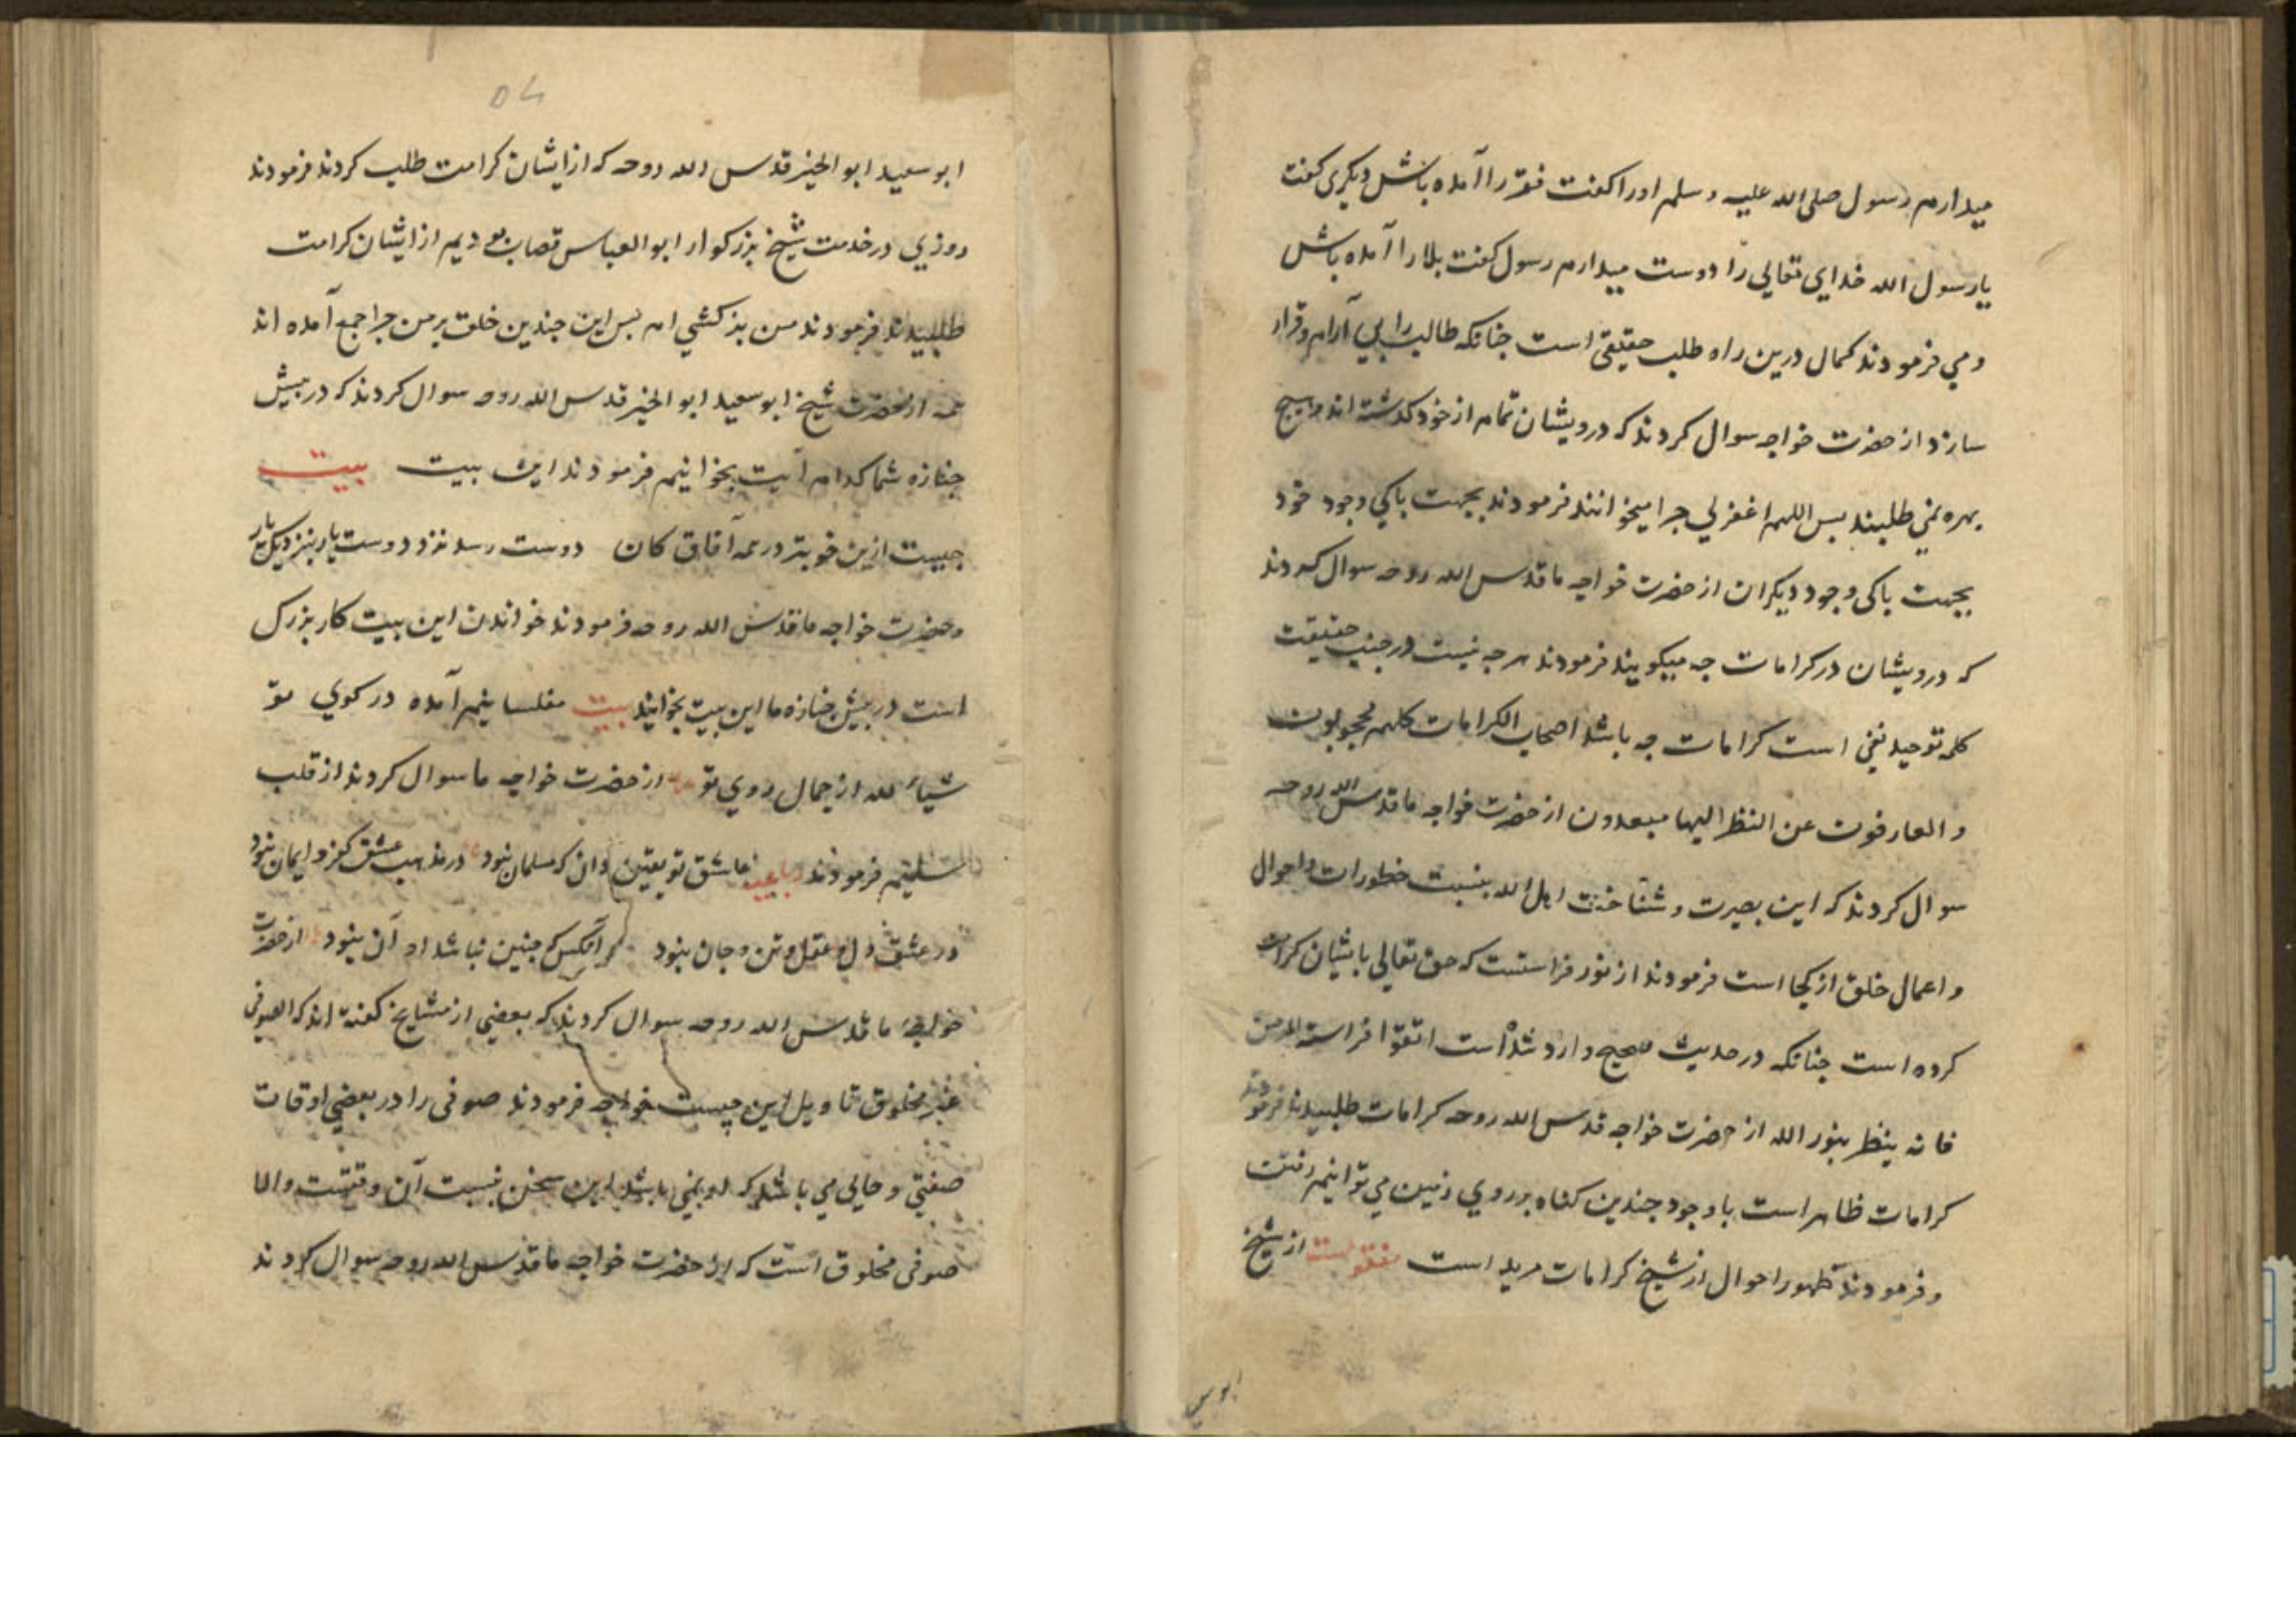 میدارم رسول صلی الله علیه وسلم اورا کفت فقر را آماده باش دیکری کفت
یا رسول الله خدای تعالی را دوست میدارم رسول کفت بلا را آماده باش
و می فرمودند کمال درین راه طلب حقیقی است جنانکه طالب را بی آرام و قرار
سازد از حضرت خواجه سوال کردند که درویشان تمام از خود کذشته اند و هیج
بهره نمی طلبند بس اللهم اغفرلی جرا میخوانند فرمودند بجهت باکی وجود خود
بجهت باکی وجود دیکران از حضرت خواجه ما قدس الله روحه سوال کردند
که درویشان در کرامات جه میکویند فرمودند هرجه نیست در جنب حقیقت
کلمه توحید نفی است کرامات جه باشد اصحاب الکرامات کلهم محجوبون
و العارفون عن النظر الیها مبعدون از حضرت خواجه ما قدس الله روحه
سوال کردند که این بصیرت و شناخت اهل الله بنسبت خطورات و احوال
و اعمال خلق از کجا است فرمودند از نور فراستست که حق تعالی بایشان کرامت
کرده است جنانکه در حدیث صحیح وارد شده است اتقوا فراسة المومن
فانه ینظر بنور الله از حضرت خواجه قدس الله روحه کرامات طلبیدند فرمودند
کرامات ظاهر است با وجود جندین کناه بر روی زمین می توانیم رفت
و فرمودند ظهور احوال از شیخ کرامات مرید است منقولست از شیخ
ابو س
ابو سعید ابو الخیر قدس الله روحه که از ایشان کرامت طلب کردند فرمودند
روزی در خدمت شیخ بزرکوار ابو العباس قصاب بودیم از ایشان کرامت
طلبیدند فرمودند من بزکشی ام بس این جندین خلق بر من جرا جمع آمده اند
همه از حضرت شیخ ابو سعید ابو الخیر قدس الله روحه سوال کردند که در بیش
جنازه شما کدام آیت بخوانیم فرمودند این بیت بیت
جیست ازین خوبتر در همه آفاق کان دوست رسد نزد دوست یار بنزدیک یار
و حضرت خواجه ما قدس الله روحه فرمودند خواندن این بیت کار بزرک
است در بیش جنازه ما این بیت بخوانید بیت مفلسانیم آمده در کوی تو
شیاء لله از جمال روی تو از حضرت خواجه ما سوال کردند از قلب
سلیم فرمودند رباعیه عاشق تو یقین دان که مسلمان نبود در مذهب عشق کفر و ایمان نبود
در عشق دل و عقل و تن و جان نبود هر آنکس که جنین نباشد او آن نبود از حضرت
خواجه ما قدس الله روحه سوال کردند که بعضی از مشایخ کفته اند که الصوفی
غیر مخلوق تاویل این چیست خواجه فرمودند صوفی را در بعضی اوقات
صفتی و حالی می باشد که او نمی باشد این سخن نسبت آن وقتست و الا
صوفی مخلوق است که از حضرت خواجه ما قدس الله روحه سوال کردند